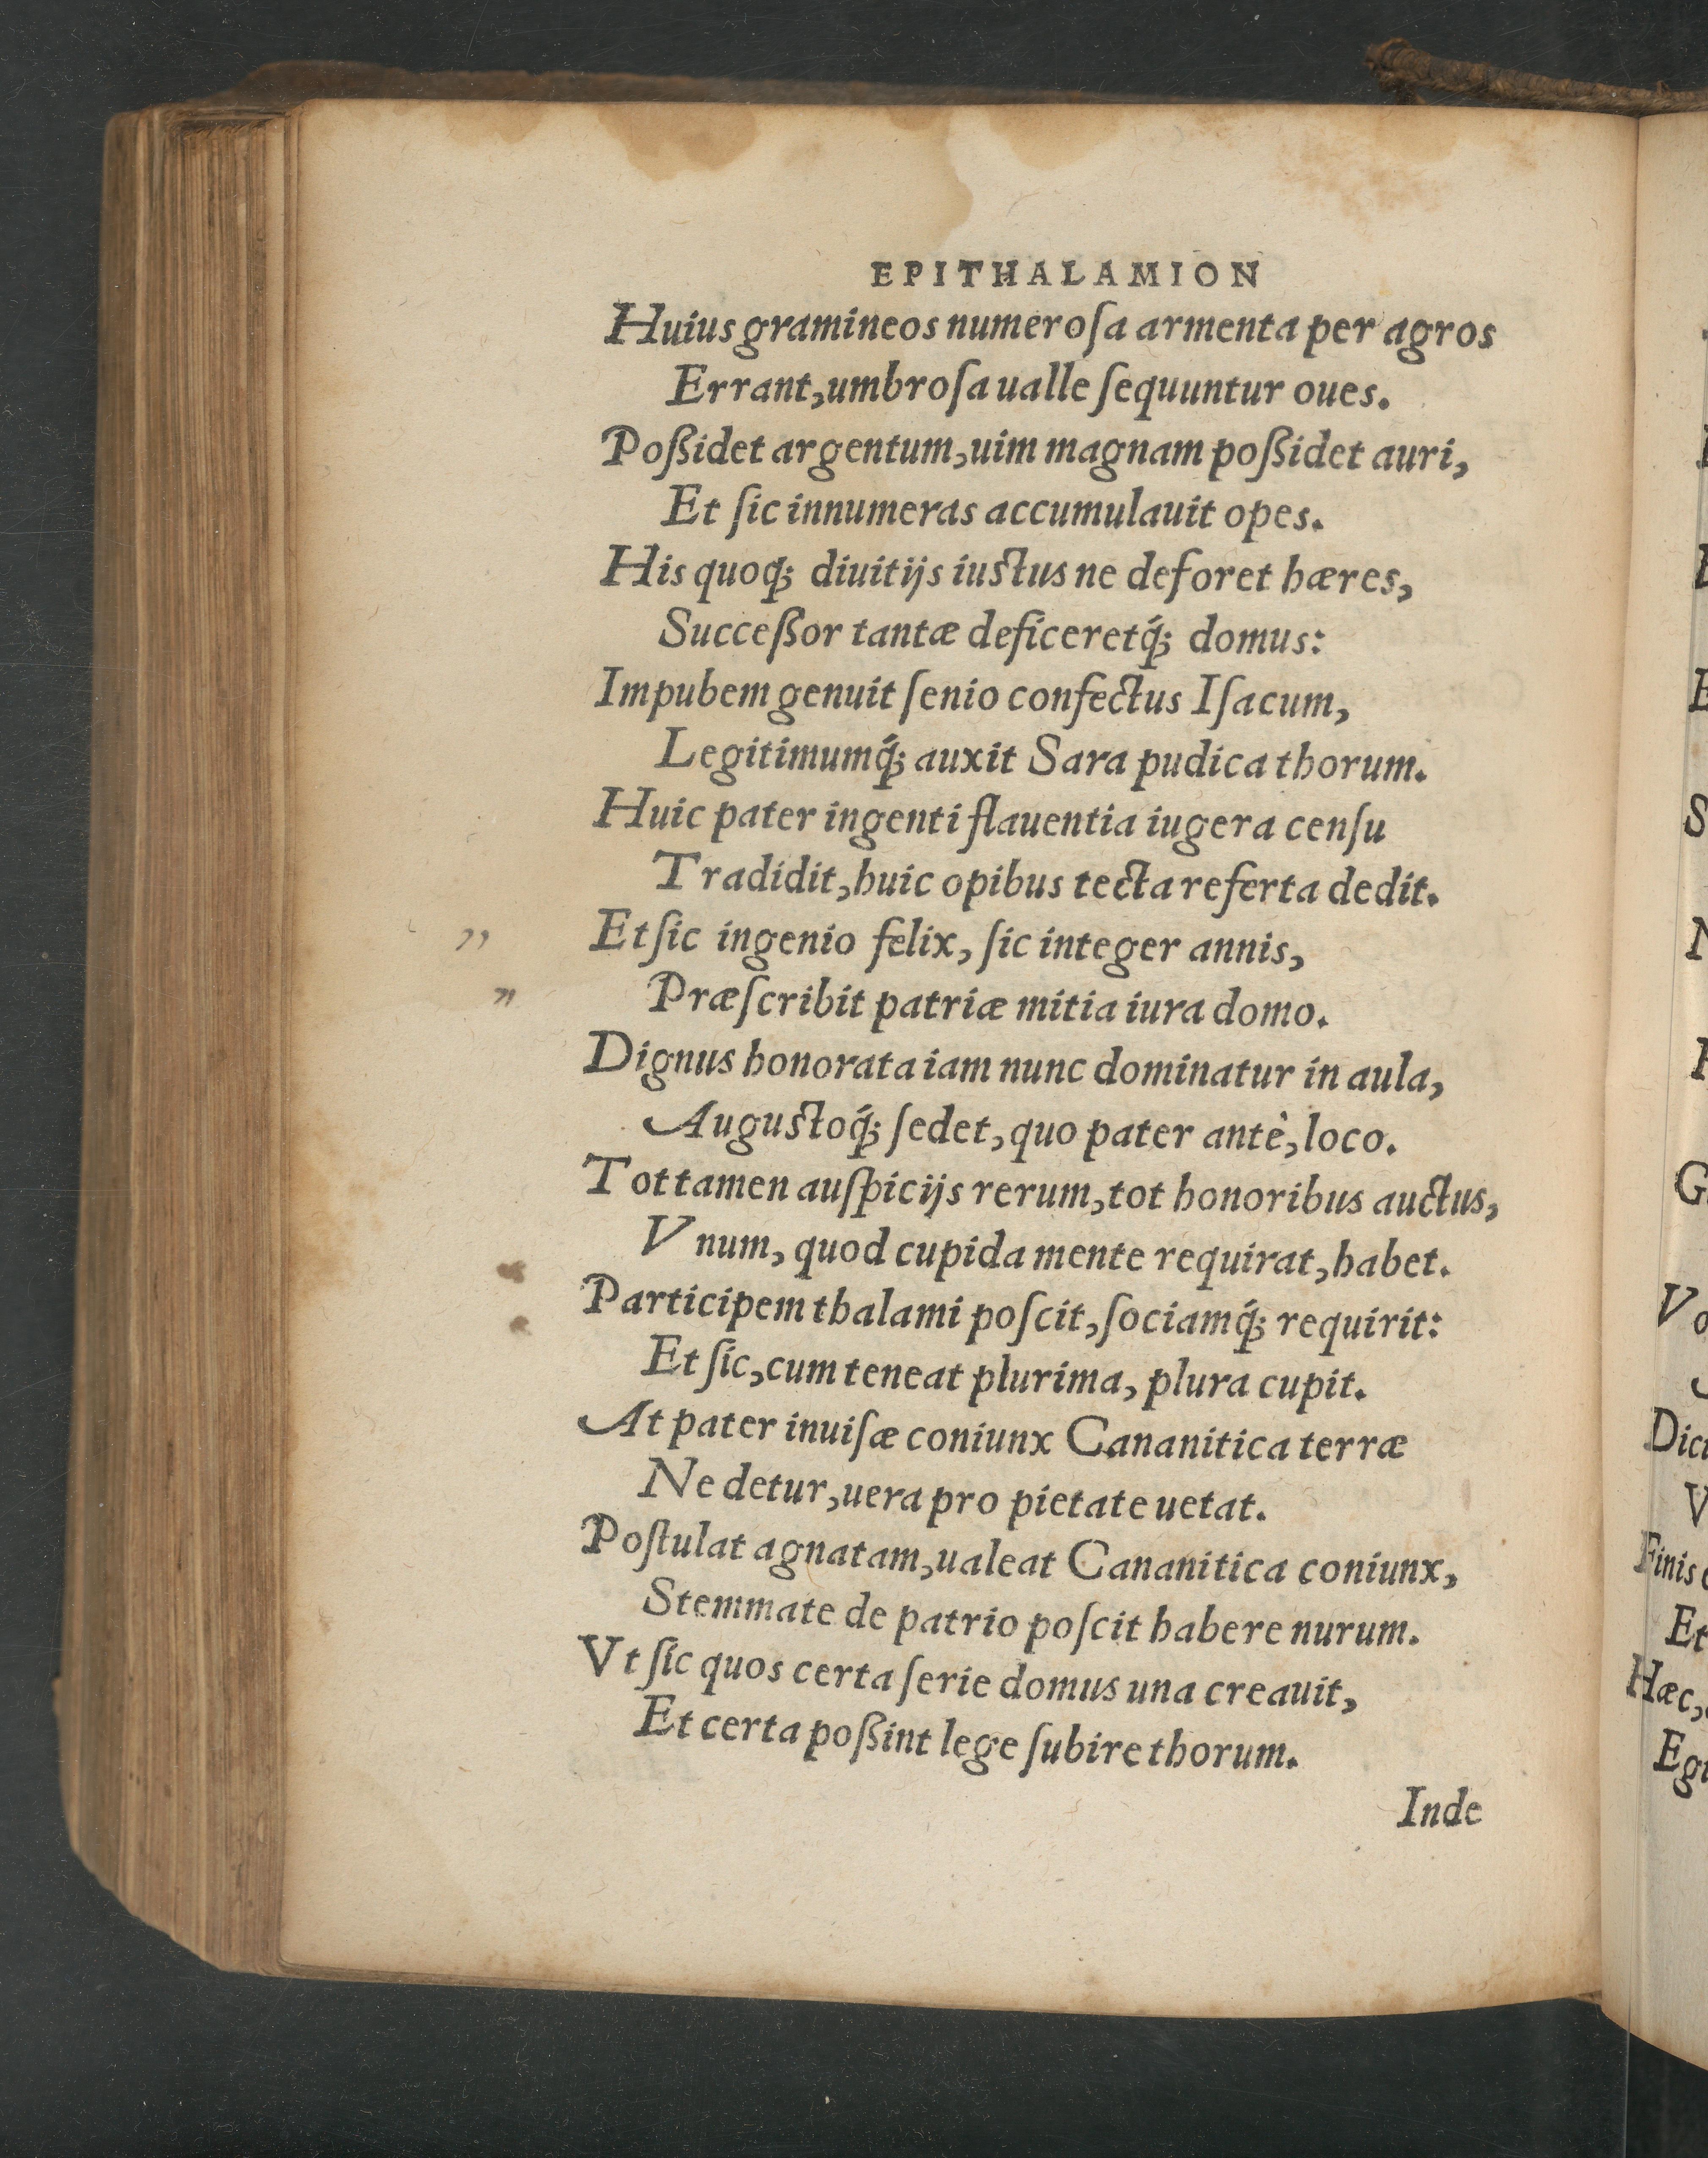 EPITHALAMION
Huius gramineos numeroſa armenta per agros
Errant, umbroſa ualle ſequuntur oues.
Poßidet argentum, uim magnam poßidet auri,
Et ſic innumeras accumulauit opes.
His quoq; diuitijs iuſtus ne deforet hæres,
Succeßor tantæ deficeretq́; domus:
Impubem genuit ſenio confectus Iſacum,
Legitimumq́; auxit Sara pudica thorum.
Huic pater ingenti flauentia iugera cenſu
Tradidit, huic opibus tecta referta dedit.
,, Et ſic ingenio felix, ſic integer annis,
,, Præſcribit patriæ mitia iura domo.
Dignus honorata iam nunc dominatur in aula,
Auguſtoq́; ſedet, quo pater antè, loco.
Tot tamen auſpicijs rerum, tot honoribus auctus,
Vnum, quod cupida mente requirat, habet.
Participem thalami poſcit, ſociamq́; requirit:
Et ſic, cum teneat plurima, plura cupit.
At pater inuiſæ coniunx Cananitica terræ
Ne detur, uera pro pietate uetat.
Poſtulat agnatam, ualeat Cananitica coniunx,
Stemmate de patrio poſcit habere nurum.
Vt ſic quos certa ſerie domus una creauit,
Et certa poßint lege ſubire thorum.
Inde
Dici
Finis
Et
Hæc,